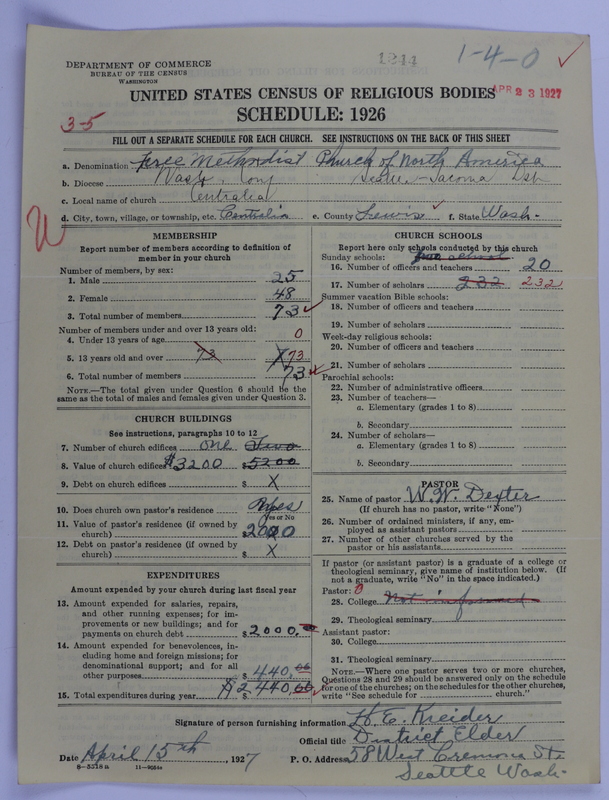 1244
1-4-0
DEPARTMENT OF COMMERCE
BUREAU OF THE CENSUS
WASHINGTON
APR 23 1927
UNITED STATES CENSUS OF RELIGIOUS BODIES
SCHEDULE: 1926
3-5
FILL OUT A SEPARATE SCHEDULE FOR EACH CHURCH. SEE INSTRUCTIONS ON THE BACK OF THIS SHEET
a. Denomination Free Methodist Church of North America
b. Diocese Wash. Conf Seattle-Tacoma Dist
c. Local name of church Centralia
d. City, town, village, or township, etc. Centralia e. County Lewis f. State Wash.
W
MEMBERSHIP
Report number of members according to definition of
member in your church
Number of members, by sex:
1. Male 25
2. Female 48
3. Total number of members 73
Number of members under and over 13 years old:
4. Under 13 years of age 0
5. 13 years old and over 73 73
6. Total number of members 73
NOTE.—The total given under Question 6 should be the
same as the total of males and females given under Question 3.
CHURCH BUILDINGS
See instructions, paragraphs 10 to 12
7. Number of church edifices one two
8. Value of church edifices $3200 5200
9. Debt on church edifices $ X
10. Does church own pastor's residence Yes
Yes or No
11. Value of pastor's residence (if owned by
church) $ 2000
12. Debt on pastor's residence (if owned by
church) $ X
EXPENDITURES
Amount expended by your church during last fiscal year
13. Amount expended for salaries, repairs,
and other running expenses; for im-
provements or new buildings; and for
payments on church debt $ 2000.
14. Amount expended for benevolences, in-
cluding home and foreign missions; for
denominational support; and for all
other purposes $ 440.66
15. Total expenditures during year $ 2440.66
CHURCH SCHOOLS
Report here only schools conducted by this church
Sunday schools:
16. Number of officers and teachers 20
17. Number of scholars 232 232
Summer vacation Bible schools:
18. Number of officers and teachers
19. Number of scholars
Week-day religious schools:
20. Number of officers and teachers
21. Number of scholars
Parochial schools:
22. Number of administrative officers
23. Number of teachers—
a. Elementary (grades 1 to 8)
b. Secondary
24. Number of scholars—
a. Elementary (grades 1 to 8)
b. Secondary
PASTOR
25. Name of pastor W. W. Dexter
(If church has no pastor, write "None")
26. Number of ordained ministers, if any, em-
ployed as assistant pastors
27. Number of other churches served by the
pastor or his assistants
If pastor (or assistant pastor) is a graduate of a college or
theological seminary, give name of institution below. (If
not a graduate, write "No" in the space indicated.)
Pastor: 0
28. College Not informed
29. Theological seminary
Assistant pastor:
30. College
31. Theological seminary
NOTE.—Where one pastor serves two or more churches,
Questions 28 and 29 should be answered only on the schedule
for one of the churches; on the schedules for the other churches,
write "See schedule for church."
Signature of person furnishing information H. E. Kreider
Official title District Elder
Date April 15th, 1927 P. O. Address 58 West Cremona St.
Seattle Wash.